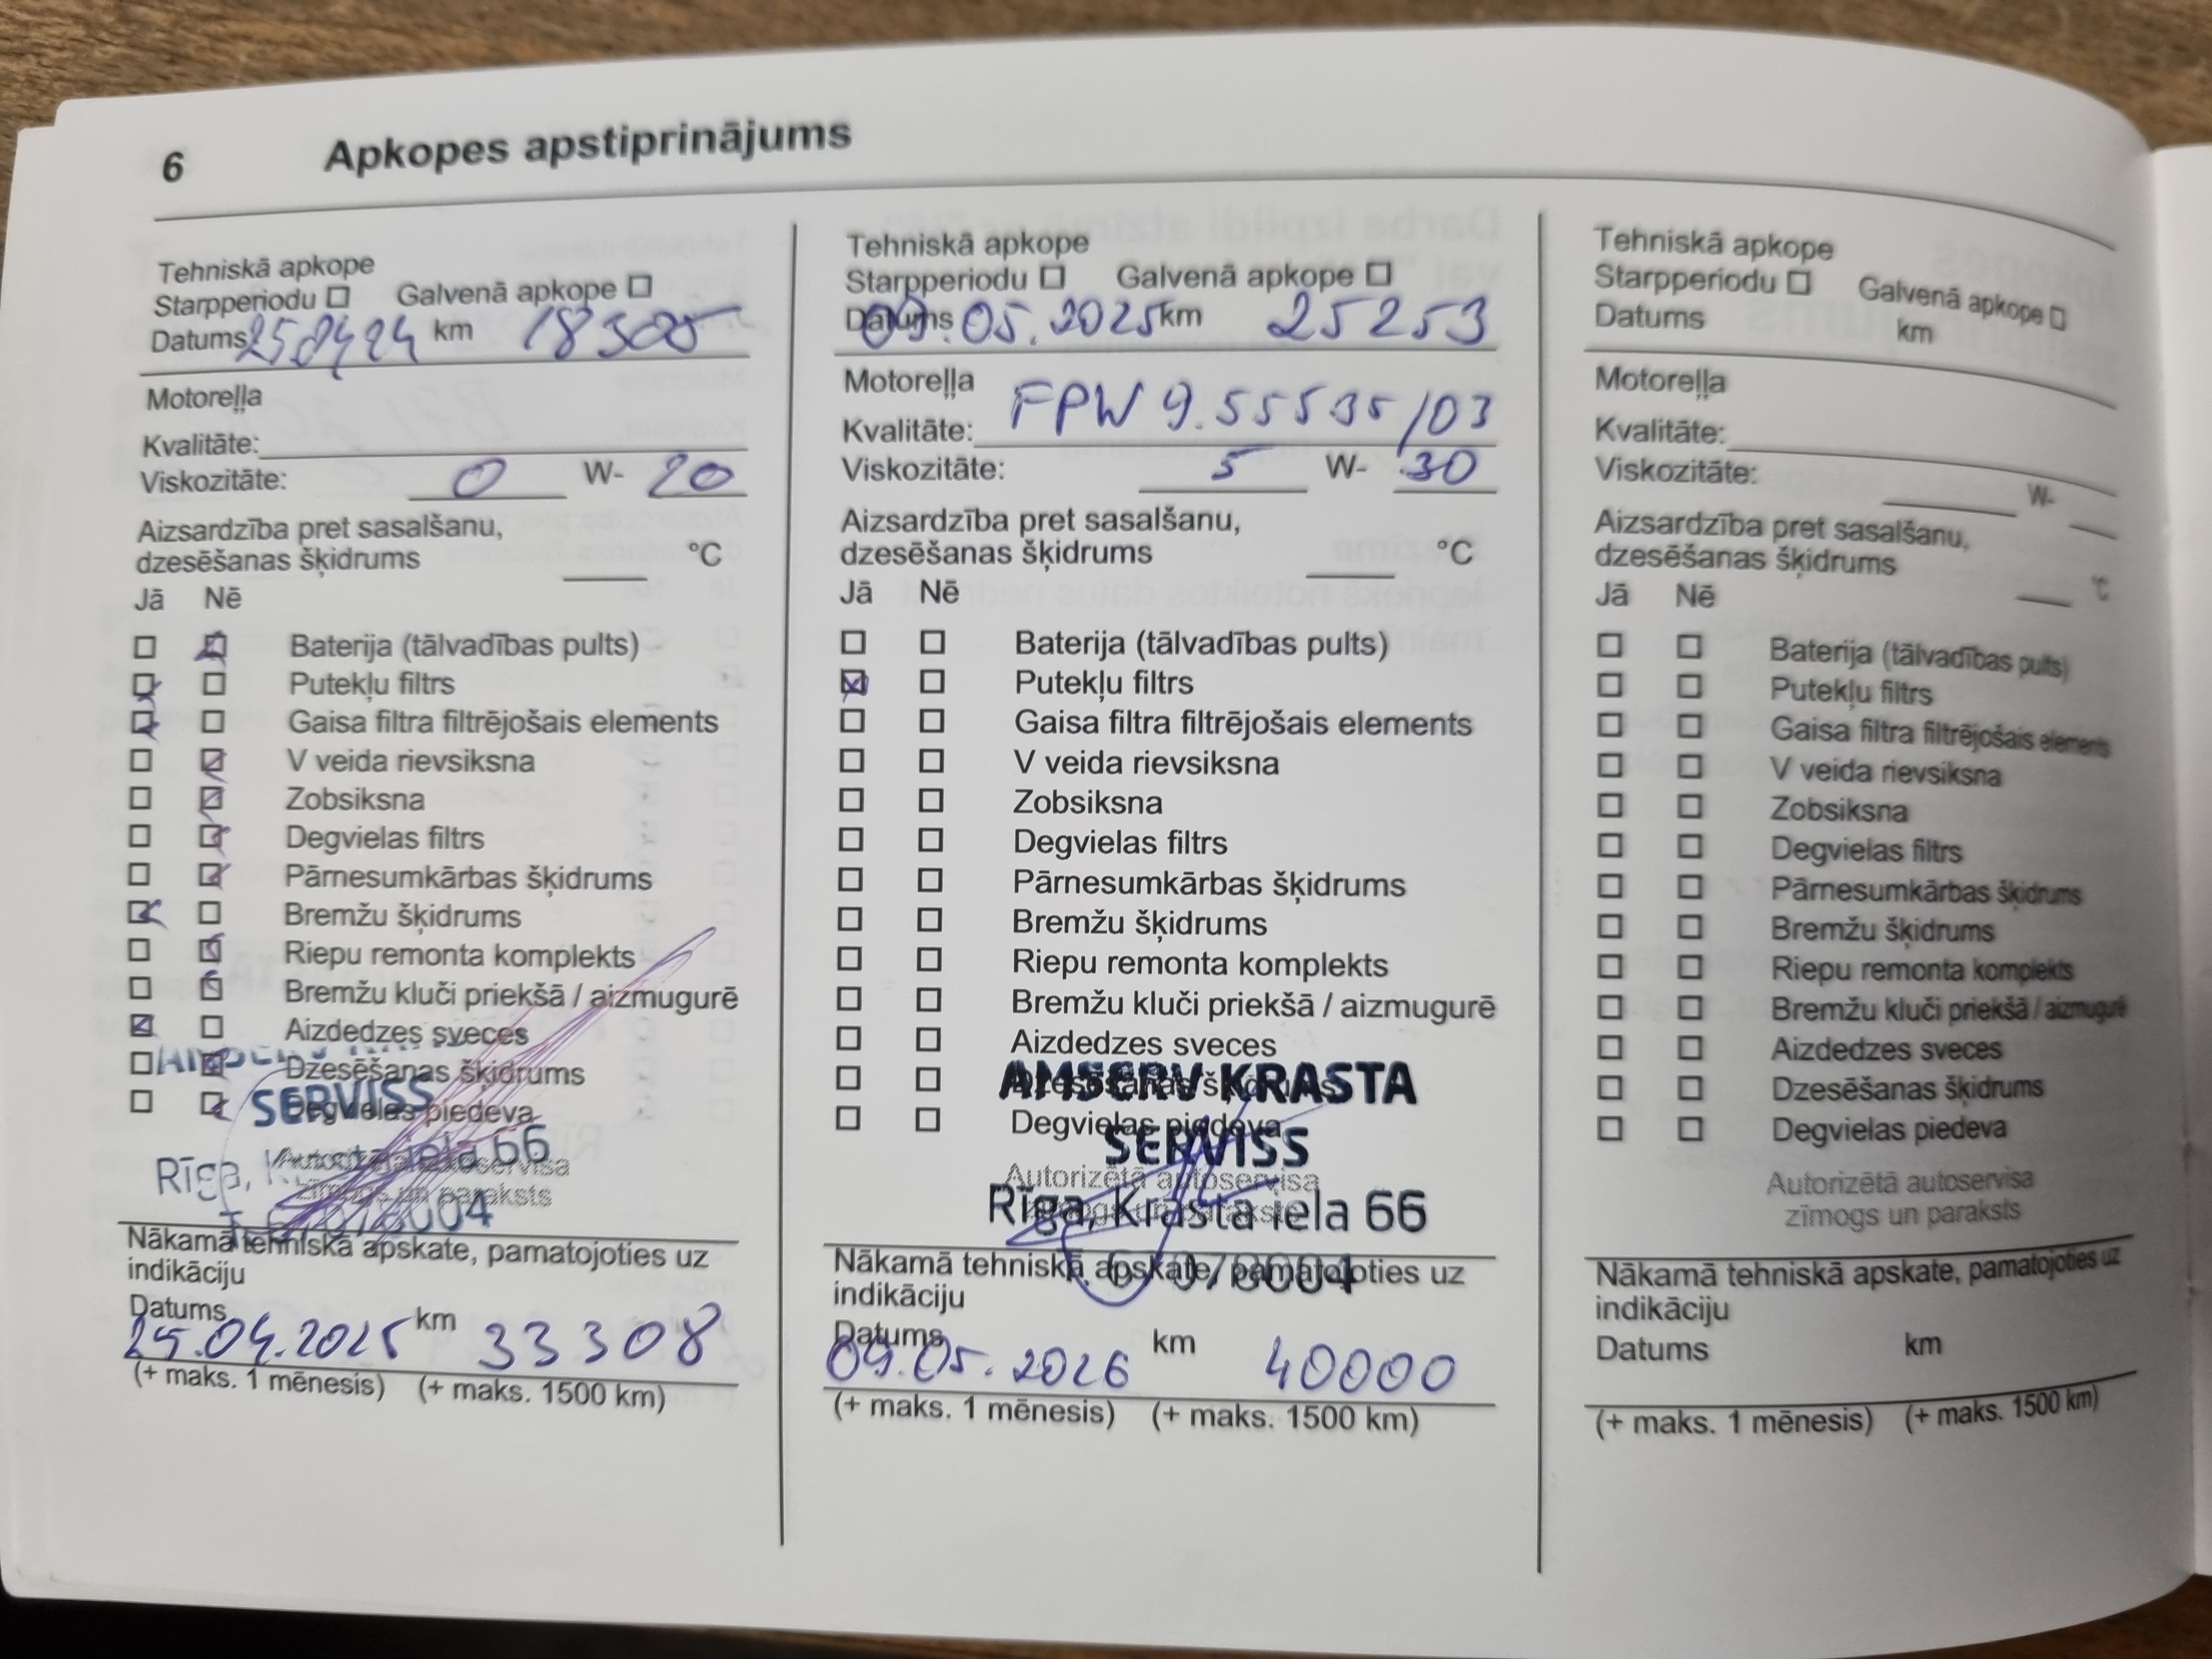 6 Apkopes apstiprinājums
Tehniskā apkope
Starpperiodu ☐ Galvenā apkope ☐
Datums 250424 km 18305
Motoreļļa
Kvalitāte:
Viskozitāte: 0 W- 20
Aizsardzība pret sasalšanu,
dzesēšanas šķidrums °C
Jā Nē
Baterija (tālvadības pults)
Putekļu filtrs
Gaisa filtra filtrējošais elements
V veida rievsiksna
Zobsiksna
Degvielas filtrs
Pārnesumkārbas šķidrums
Bremžu šķidrums
Riepu remonta komplekts
Bremžu kluči priekšā / aizmugurē
Aizdedzes sveces
Dzesēšanas šķidrums
Degvielas piedeva
SERVISS
Autorizētā autoservisa
zīmogs un paraksts
Rīga, Krasta iela 66
Nākamā tehniskā apskate, pamatojoties uz
indikāciju
Datums 25.04.2025 km 33308
(+ maks. 1 mēnesis) (+ maks. 1500 km)
Tehniskā apkope
Starpperiodu ☐ Galvenā apkope ☐
Datums 09.05.2025 km 25253
Motoreļļa
Kvalitāte: FPW 9.55535/03
Viskozitāte: 5 W- 30
Aizsardzība pret sasalšanu,
dzesēšanas šķidrums °C
Jā Nē
Baterija (tālvadības pults)
Putekļu filtrs
Gaisa filtra filtrējošais elements
V veida rievsiksna
Zobsiksna
Degvielas filtrs
Pārnesumkārbas šķidrums
Bremžu šķidrums
Riepu remonta komplekts
Bremžu kluči priekšā / aizmugurē
Aizdedzes sveces
Dzesēšanas šķidrums
Degvielas piedeva
AMSERV KRASTA
SERVISS
Autorizētā autoservisa
zīmogs un paraksts
Rīga, Krasta iela 66
67078004
Nākamā tehniskā apskate, pamatojoties uz
indikāciju
Datums 09.05.2026 km 40000
(+ maks. 1 mēnesis) (+ maks. 1500 km)
Tehniskā apkope
Starpperiodu ☐ Galvenā apkope ☐
Datums km
Motoreļļa
Kvalitāte:
Viskozitāte: W-
Aizsardzība pret sasalšanu,
dzesēšanas šķidrums °C
Jā Nē
Baterija (tālvadības pults)
Putekļu filtrs
Gaisa filtra filtrējošais elements
V veida rievsiksna
Zobsiksna
Degvielas filtrs
Pārnesumkārbas šķidrums
Bremžu šķidrums
Riepu remonta komplekts
Bremžu kluči priekšā / aizmugurē
Aizdedzes sveces
Dzesēšanas šķidrums
Degvielas piedeva
Autorizētā autoservisa
zīmogs un paraksts
Nākamā tehniskā apskate, pamatojoties uz
indikāciju
Datums km
(+ maks. 1 mēnesis) (+ maks. 1500 km)